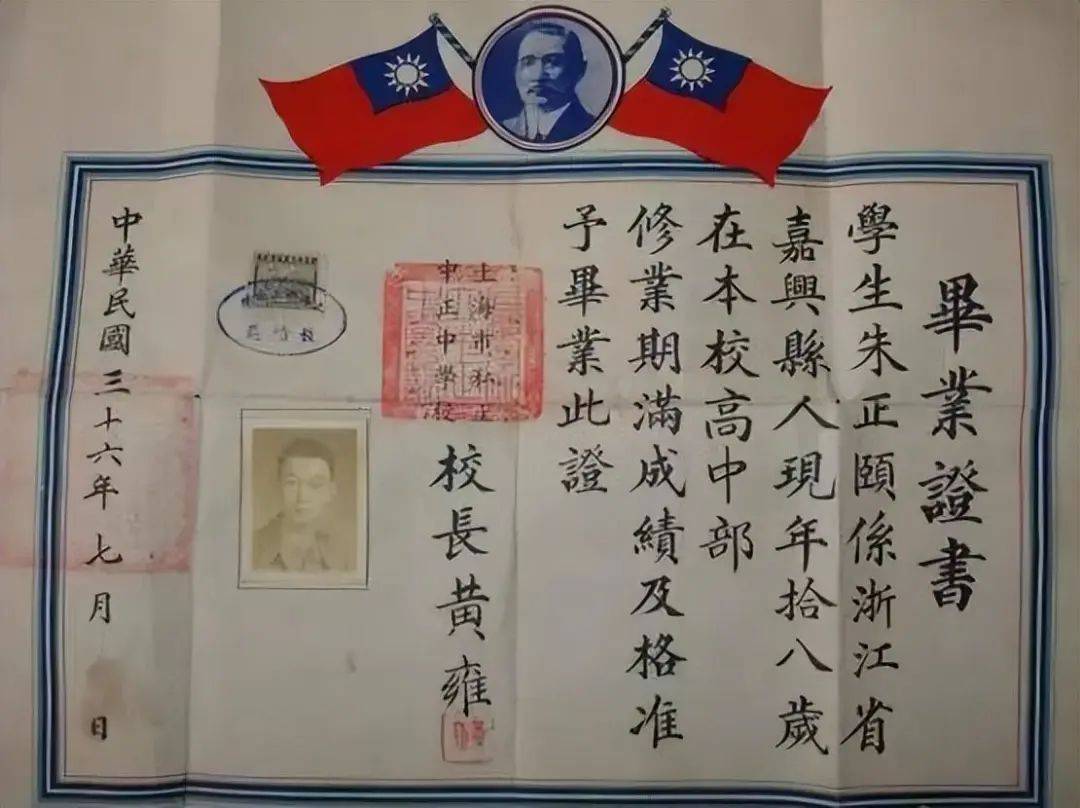 畢業證書
學生朱正頤係浙江省
嘉興縣人現年拾八歲
在本校高中部
修業期滿成績及格准
予畢業此證
上海市私立
中正中學校
校長黃雍
中華民國三十六年七月日